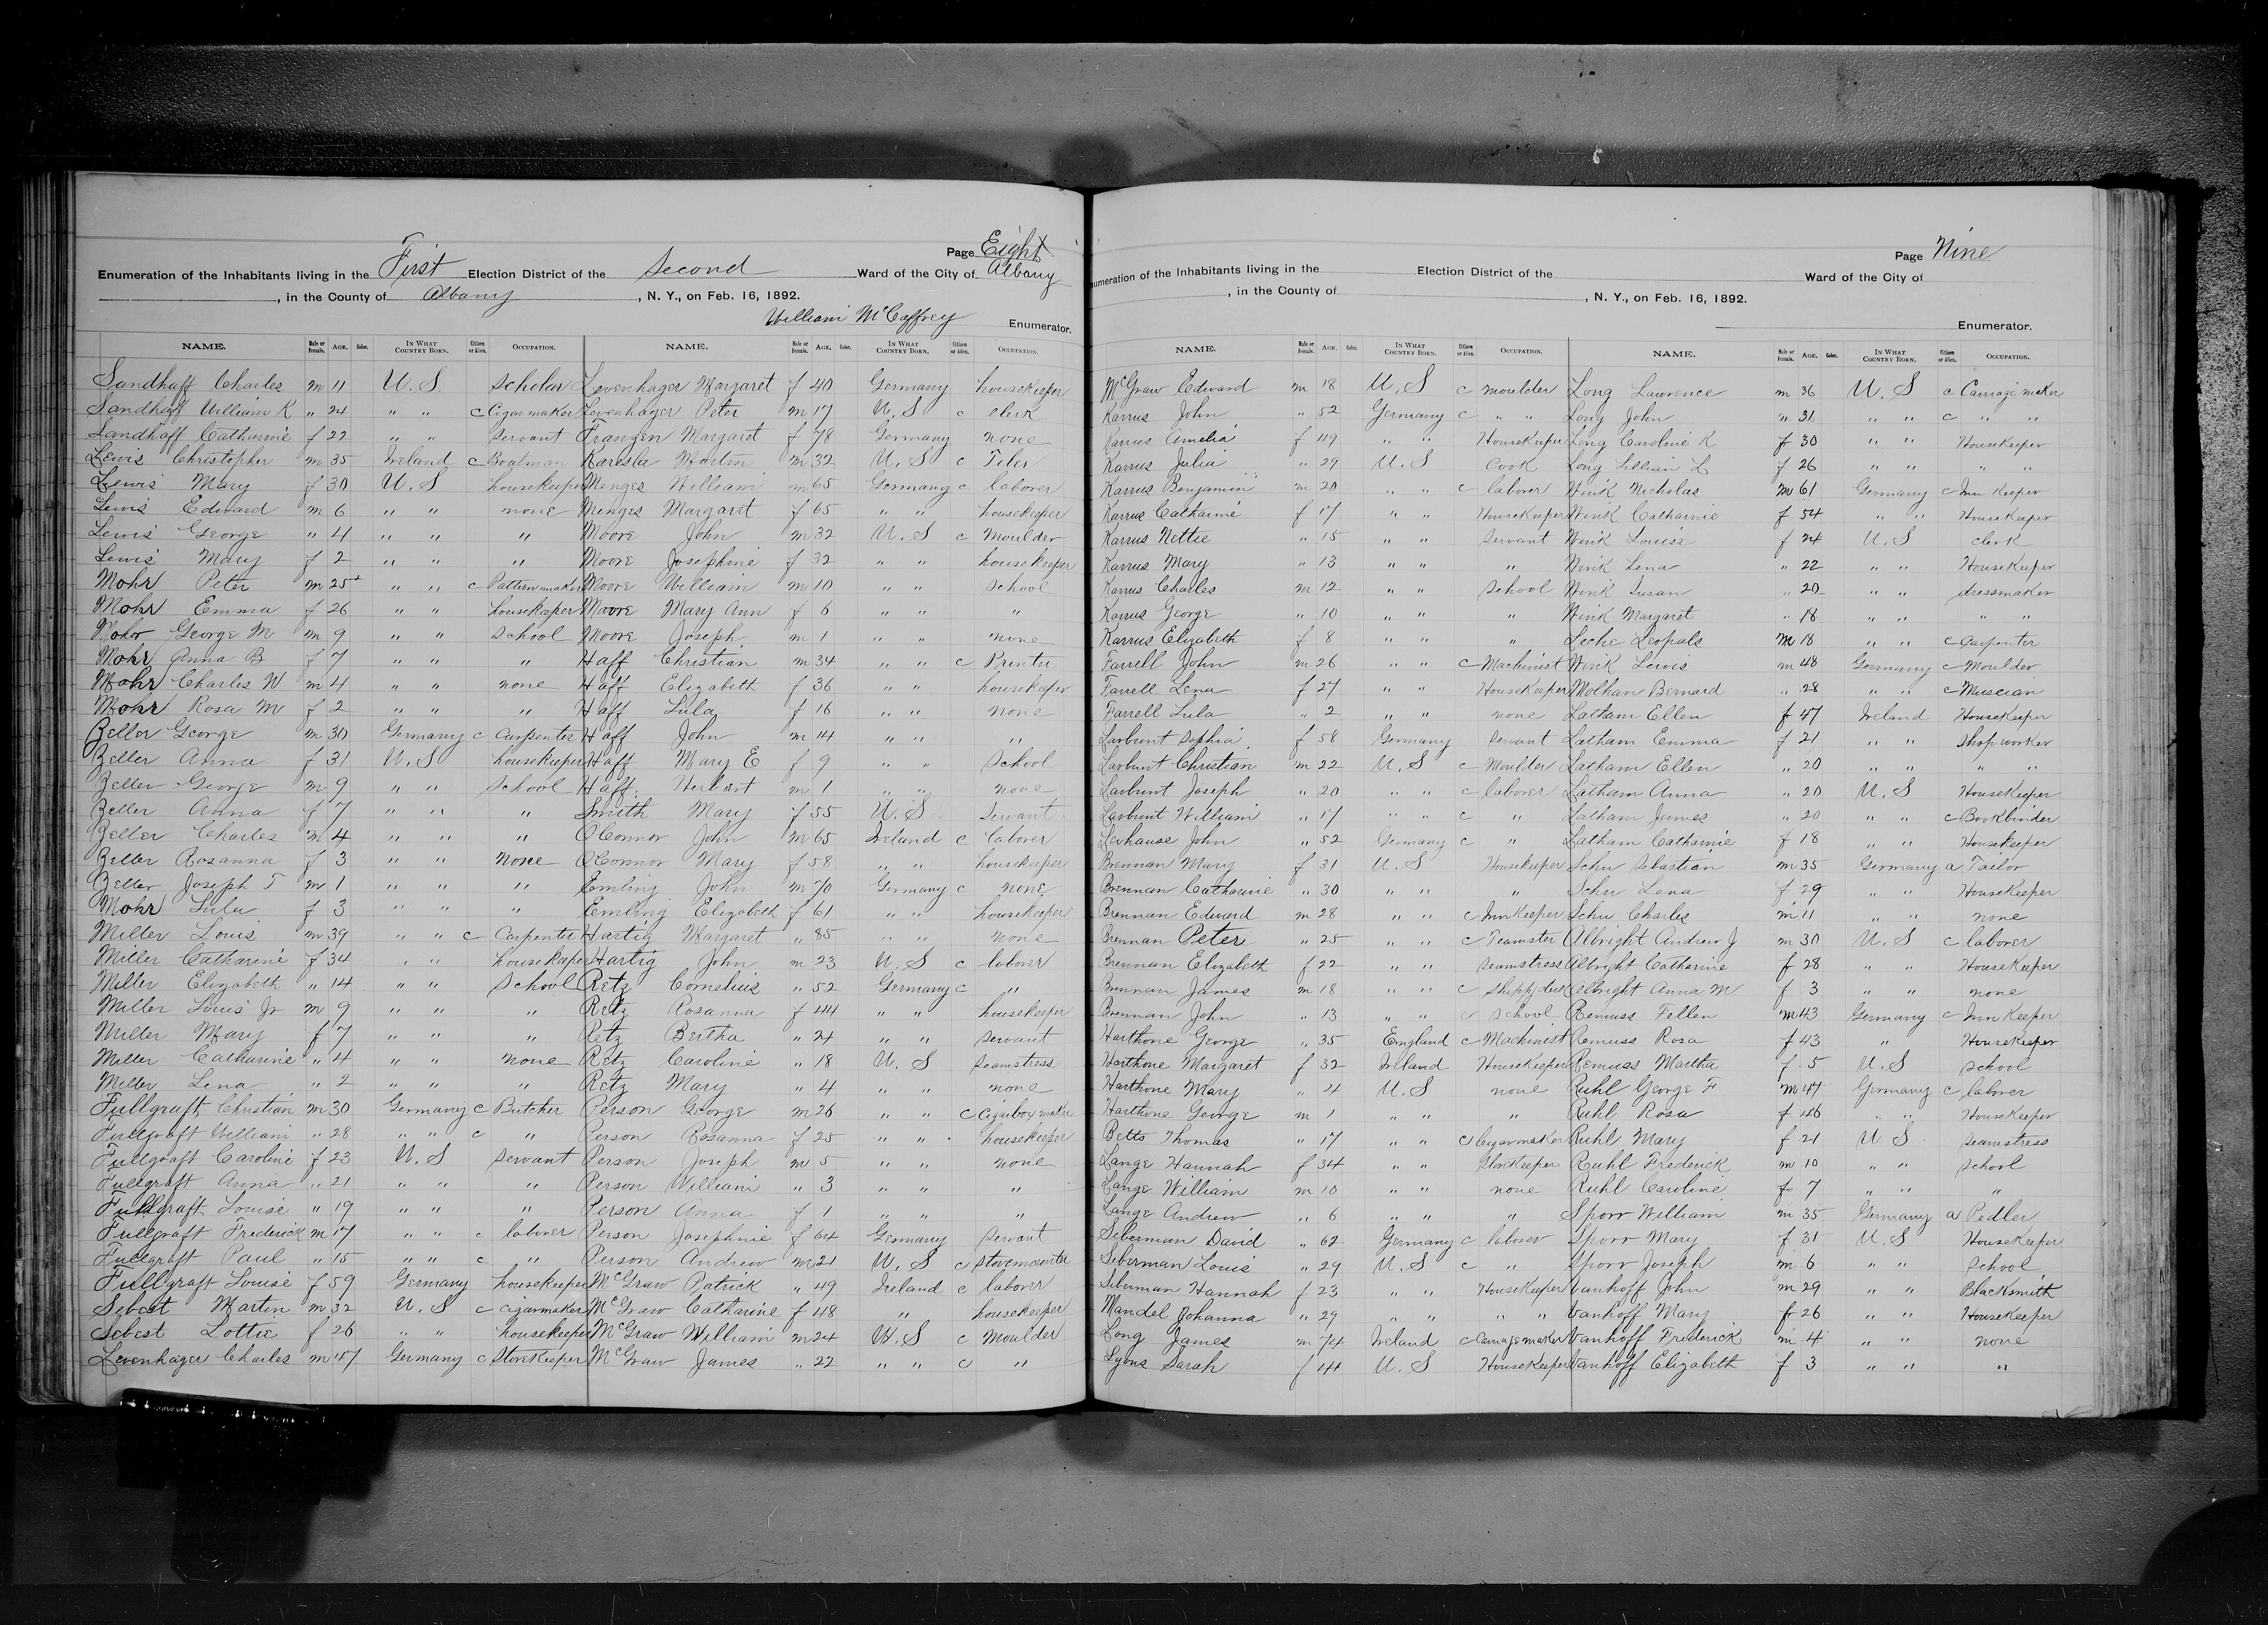 Page Eight
Enumeration of the Inhabitants living in the First Election District of the Second Ward of the City of Albany
, in the County of Albany, N. Y., on Feb. 16, 1892.
William McCaffrey Enumerator.
NAME. Male or Female. AGE. Color. IN WHAT COUNTRY BORN. Citizen or Alien. OCCUPATION.
Sandhaff Charles m 11 U.S. Scholar
Sandhaff William K " 24 " " c Cigar maker
Sandhaff Catharine f 22 " " Servant
Lewis Christopher m 35 Ireland c Boatman
Lewis Mary f 30 U.S housekeeper
Lewis Edward m 6 " " none
Lewis George " 4 " " "
Lewis Mary f 2 " " "
Mohr Peter m 25 " " c Pattern maker
Mohr Emma f 26 " " housekeeper
Mohr George M m 9 " " School
Mohr Anna B f 7 " " "
Mohr Charles W m 4 " " none
Mohr Rosa M f 2 " " "
Zeller George m 30 Germany c Carpenter
Zeller Anna f 31 U.S housekeeper
Zeller George m 9 " " School
Zeller Anna f 7 " " "
Zeller Charles m 4 " " "
Zeller Rosanna f 3 " " none
Zeller Joseph T m 1 " " "
Mohr Lula f 3 " " "
Miller Louis m 39 " " c Carpenter
Miller Catharine f 34 " " housekeeper
Miller Elizabeth " 14 " " School
Miller Louis Jr m 9 " " "
Miller Mary f 7 " " "
Miller Catharine " 4 " " none
Miller Lena " 2 " " "
Fullgraft Christian m 30 Germany c Butcher
Fullgraft William " 28 " " c "
Fullgraft Caroline f 23 U.S Servant
Fullgraft Anna " 21 " " "
Fullgraft Louise " 19 " " "
Fullgraft Frederick m 17 " " c laborer
Fullgraft Paul " 15 " " c "
Fullgraft Louise f 59 Germany housekeeper
Sebest Martin m 32 U.S c Cigarmaker
Sebest Lottie f 26 " " housekeeper
Levenhager Charles m 47 Germany c StoreKeeper
NAME. Male or Female. AGE. Color. IN WHAT COUNTRY BORN. Citizen or Alien. OCCUPATION.
Levenhager Margaret f 40 Germany housekeeper
Levenhager Peter m 17 U.S c Clerk
Franzen Margaret f 78 Germany none
Karesla Martin m 32 U.S c Tiler
Menges William m 65 Germany c laborer
Menges Margaret f 65 " " housekeeper
Moore John m 32 U.S c Moulder
Moore Josephine f 32 " " housekeeper
Moore William m 10 " " School
Moore Mary Ann f 6 " " "
Moore Joseph m 1 " " none
Haff Christian m 34 " " c Printer
Haff Elizabeth f 36 " " housekeeper
Haff Lula f 16 " " none
Haff John m 14 " " "
Haff Mary E f 9 " " School
Haff Herbert m 1 " " none
Smith Mary f 55 U.S Servant
O'Connor John m 65 Ireland c laborer
O'Connor Mary f 58 " " housekeeper
Emling John m 70 Germany c none
Emling Elizabeth f 61 " " housekeeper
Hartig Margaret " 85 " " none
Hartig John m 23 U.S c laborer
Retz Cornelius " 52 Germany c "
Retz Rosanna f 44 " " housekeeper
Retz Bertha " 24 " " servant
Retz Caroline " 18 U.S Seamstress
Retz Mary " 4 " " none
Person George m 26 " " c Cigarbox maker
Person Rosanna f 25 " " housekeeper
Person Joseph m 5 " " none
Person William " 3 " " "
Person Anna f 1 " " "
Person Josephine f 64 Germany Servant
Person Andrew m 21 U.S c Stovemounter
McGraw Patrick " 49 Ireland c laborer
McGraw Catharine f 48 " housekeeper
McGraw William m 24 U.S c Moulder
McGraw James " 22 " " c "
Page Nine
Enumeration of the Inhabitants living in the Election District of the Ward of the City of
, in the County of , N. Y., on Feb. 16, 1892.
Enumerator.
NAME. Male or Female. AGE. Color. IN WHAT COUNTRY BORN. Citizen or Alien. OCCUPATION.
McGraw Edward m 18 U.S c moulder
Karrus John " 52 Germany c " "
Karrus Amelia f 49 " " HouseKeeper
Karrus Julia " 29 U.S Cook
Karrus Benjamin m 20 " " c laborer
Karrus Catharine f 17 " " HouseKeeper
Karrus Nettie " 15 " " Servant
Karrus Mary " 13 " " "
Karrus Charles m 12 " " School
Karrus George " 10 " " "
Karrus Elizabeth f 8 " " "
Farrell John m 26 " " c Machinist
Farrell Lena f 27 " " HouseKeeper
Farrell Lula " 2 " " none
Larbunt Sophia f 58 Germany Servant
Larbunt Christian m 22 U.S c Moulder
Larbunt Joseph " 20 " " c laborer
Larbunt William " 17 " " c "
Levhause John " 52 Germany c "
Brennan Mary f 31 U.S HouseKeeper
Brennan Catharine " 30 " " "
Brennan Edward m 28 " " c InnKeeper
Brennan Peter " 25 " " c Teamster
Brennan Elizabeth f 22 " " Seamstress
Brennan James m 18 " " c
Brennan John " 13 " " c School
Harthone George " 35 England c Machinist
Harthone Margaret f 32 Ireland HouseKeeper
Harthone Mary " 4 U.S none
Harthone George m 1 " " "
Betts Thomas " 17 " " c Cigarmaker
Lange Hannah f 34 " " StoreKeeper
Lange William m 10 " " none
Lange Andrew " 6 " " "
Seberman David " 62 Germany c laborer
Seberman Louis " 29 U.S c "
Seberman Hannah f 23 " " HouseKeeper
Mandel Johanna " 29 " " " "
Long James m 74 Ireland c Carriagemaker
Lyons Sarah f 44 U.S HouseKeeper
NAME. Male or Female. AGE. Color. IN WHAT COUNTRY BORN. Citizen or Alien. OCCUPATION.
Long Lawrence m 36 U.S c Carriage maker
Long John " 31 " " c " "
Long Caroline K f 30 " " HouseKeeper
Long Lillian L f 26 " " " "
Wink Nicholas m 61 Germany c Inn Keeper
Wink Catharine f 54 " " HouseKeeper
Wink Louise f 24 U.S clerk
Wink Lena " 22 " " HouseKeeper
Wink Susan " 20 " " dressmaker
Wink Margaret " 18 " " " "
Leche Leopals m 18 " " c Carpenter
Wink Lewis m 48 Germany c Moulder
Molhan Bernard " 28 " " c Muscian
Latham Ellen f 47 Ireland HouseKeeper
Latham Emma f 21 " " Shop worker
Latham Ellen " 20 " " " "
Latham Anna " 20 U.S HouseKeeper
Latham James " 20 " " c Bookbinder
Latham Catharine f 18 " " HouseKeeper
Schu Sebastian m 35 Germany a Tailor
Schu Lena f 29 " " HouseKeeper
Schu Charles m 11 " " none
Albright Andrew J m 30 U.S c laborer
Albright Catharine f 28 " " HouseKeeper
Albright Anna M f 3 " " none
Remuss Fellen m 43 Germany c Inn Keeper
Remuss Rosa f 43 " HouseKeeper
Remuss Martha f 5 U.S School
Ruhl George F m 47 Germany c laborer
Ruhl Rosa f 46 " " HouseKeeper
Ruhl Mary f 21 U S Seamstress
Ruhl Frederick m 10 " " School
Ruhl Caroline f 7 " " "
Sporr William m 35 Germany a Pedler
Sporr Mary f 31 U.S HouseKeeper
Sporr Joseph m 6 " " School
Vanhoff John m 29 " " Blacksmith
Vanhoff Mary f 26 " " HouseKeeper
Vanhoff Frederick m 4 " " none
Vanhoff Elizabeth f 3 " " "